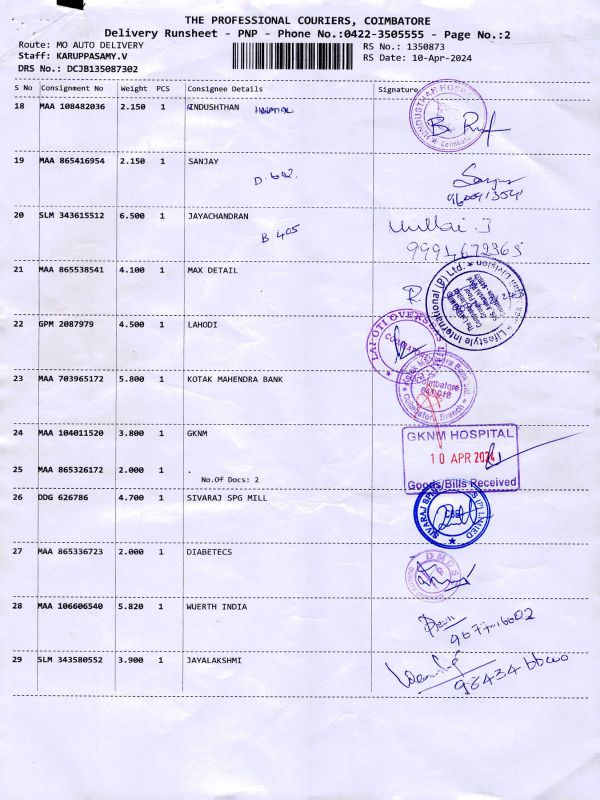 THE PROFESSIONAL COURIERS, COIMBATORE
Delivery Runsheet - PNP - Phone No.:0422-3505555 - Page No.:2
Route: MO AUTO DELIVERY RS No.: 1350873
Staff: KARUPPASAMY.V RS Date: 10-Apr-2024
DRS No.: DCJB135087302
S No Consignment No Weight PCS Consignee Details Signature
18 MAA 108482036 2.150 1 HINDUSHTHAN HOSPITAL
HINDUSTHAN HOSPITAL
Coimbatore
19 MAA 865416954 2.150 1 SANJAY
20 SLM 343615512 6.500 1 JAYACHANDRAN
B 405
21 MAA 865538541 4.100 1 MAX DETAIL
Lifestyle International (P) Ltd.
22 GPM 2087979 4.500 1 LAHODI
23 MAA 703965172 5.800 1 KOTAK MAHENDRA BANK
Coimbatore
Coimbatore Branch
24 MAA 104011520 3.800 1 GKNM
GKNM HOSPITAL
10 APR 2024
Goods/Bills Received
25 MAA 865326172 2.000 1 .
No.Of Docs: 2
26 DDG 626786 4.700 1 SIVARAJ SPG MILL
27 MAA 865336723 2.000 1 DIABETECS
28 MAA 106606540 5.820 1 WUERTH INDIA
29 SLM 343580552 3.900 1 JAYALAKSHMI